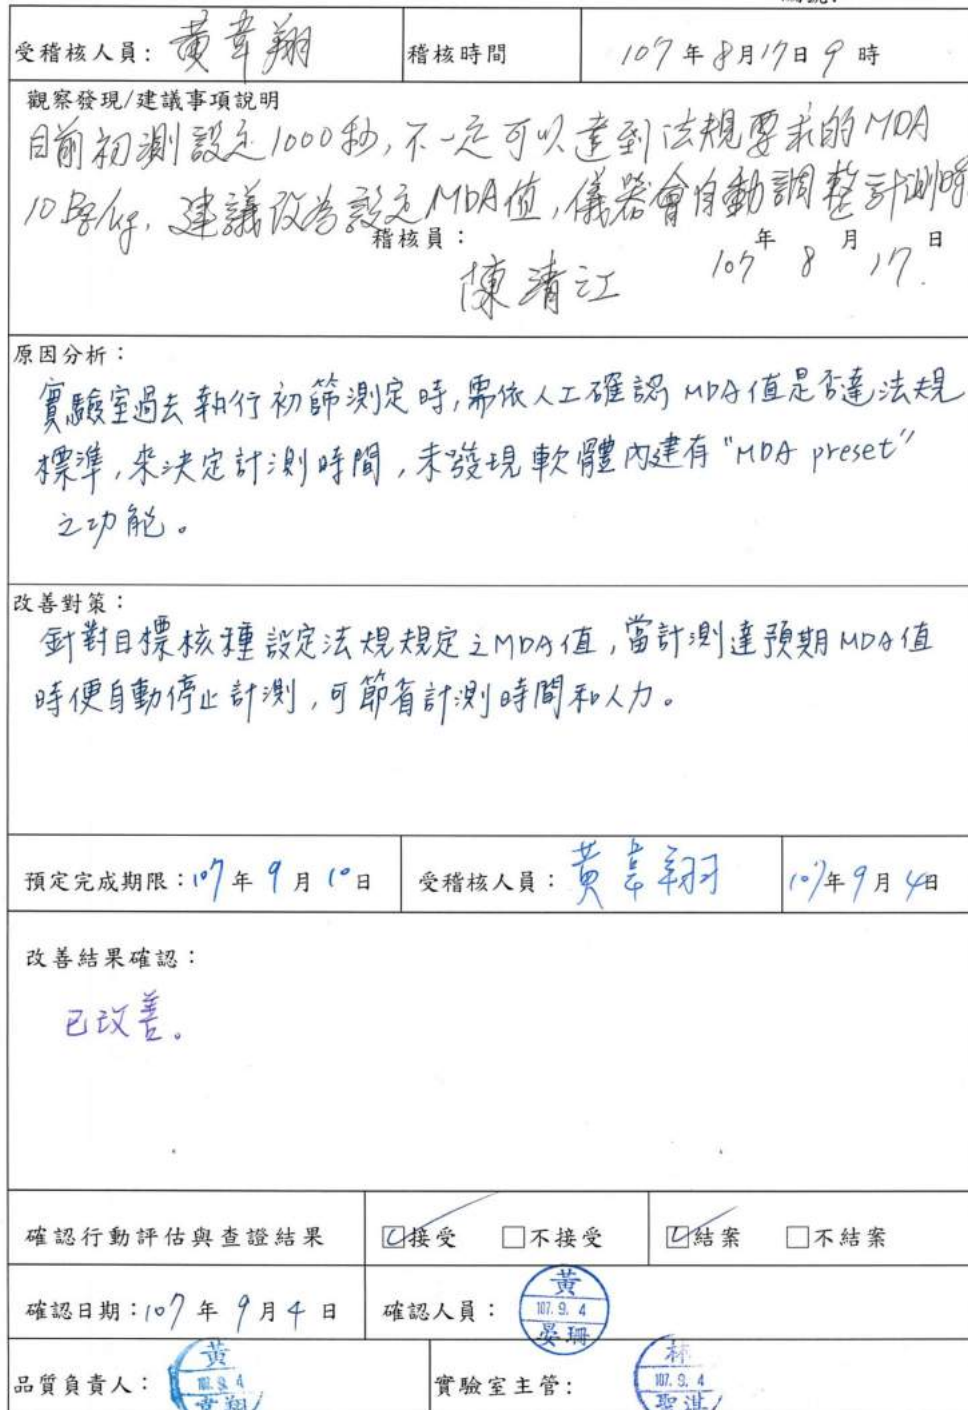 受稽核人員: 黃韋翔 稽核時間 107年8月17日9時
觀察發現/建議事項說明
目前初測設定1000秒,不一定可以達到法規要求的MDA
10 建議改為設定MDA值,儀器會自動調整計測時
稽核員: 年 月 日
陳清江 107 8 17.
原因分析:
實驗室過去執行初篩測定時,需依人工確認MDA值是否達法規
標準,來決定計測時間,未發現軟體內建有"MDA preset"
之功能。
改善對策:
針對目標核種設定法規規定之MDA值,當計測達預期MDA值
時便自動停止計測,可節省計測時間和人力。
預定完成期限:107年9月10日 受稽核人員: 黃韋翔 107年9月4日
改善結果確認:
已改善。
確認行動評估與查證結果 ☑接受 □不接受 ☑結案 □不結案
黃
確認日期:107年9月4日 確認人員: 107.9.4
晏珊
黃
品質負責人: 107.9.4 實驗室主管: 107.9.4
韋翔
林
聖淇